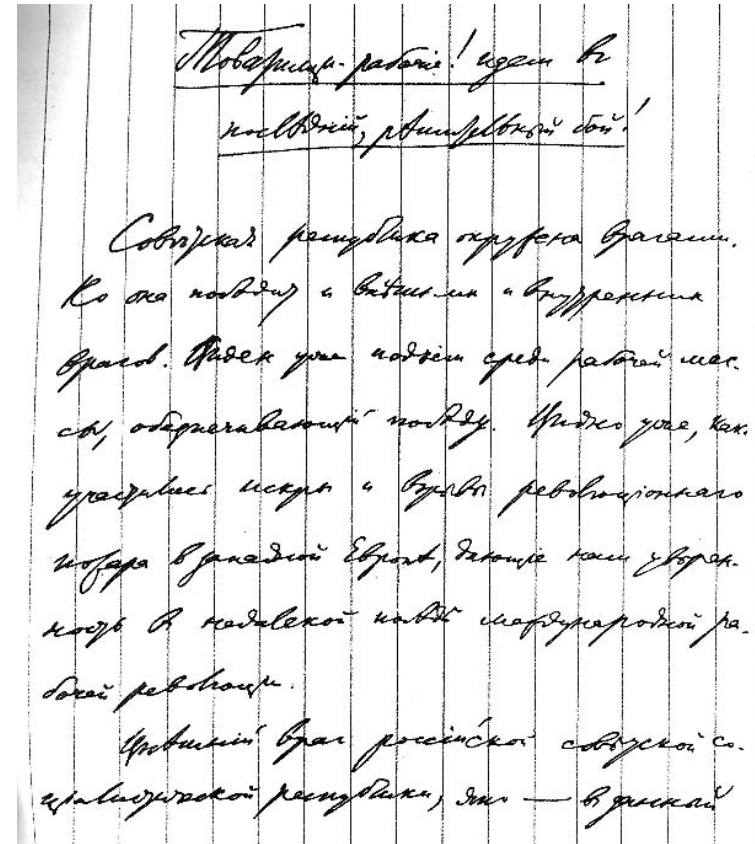 Товарищи-рабочіе! идем въ
послѣдній, рѣшительный бой!
Совѣтская республика окружена врагами.
Но она побѣдит и внѣшних и внутренних
врагов. Виден уже подъем среди рабочей мас-
сы, обеспечивающий побѣду. Видно уже, как
участились искры и взрывы революціоннаго
пожара в западной Европѣ, дающие нам уверен-
ность в недалекой побѣдѣ международной ра-
бочей революции.
Внѣшний враг россійской совѣтской со-
циалистической республики, это — в данный